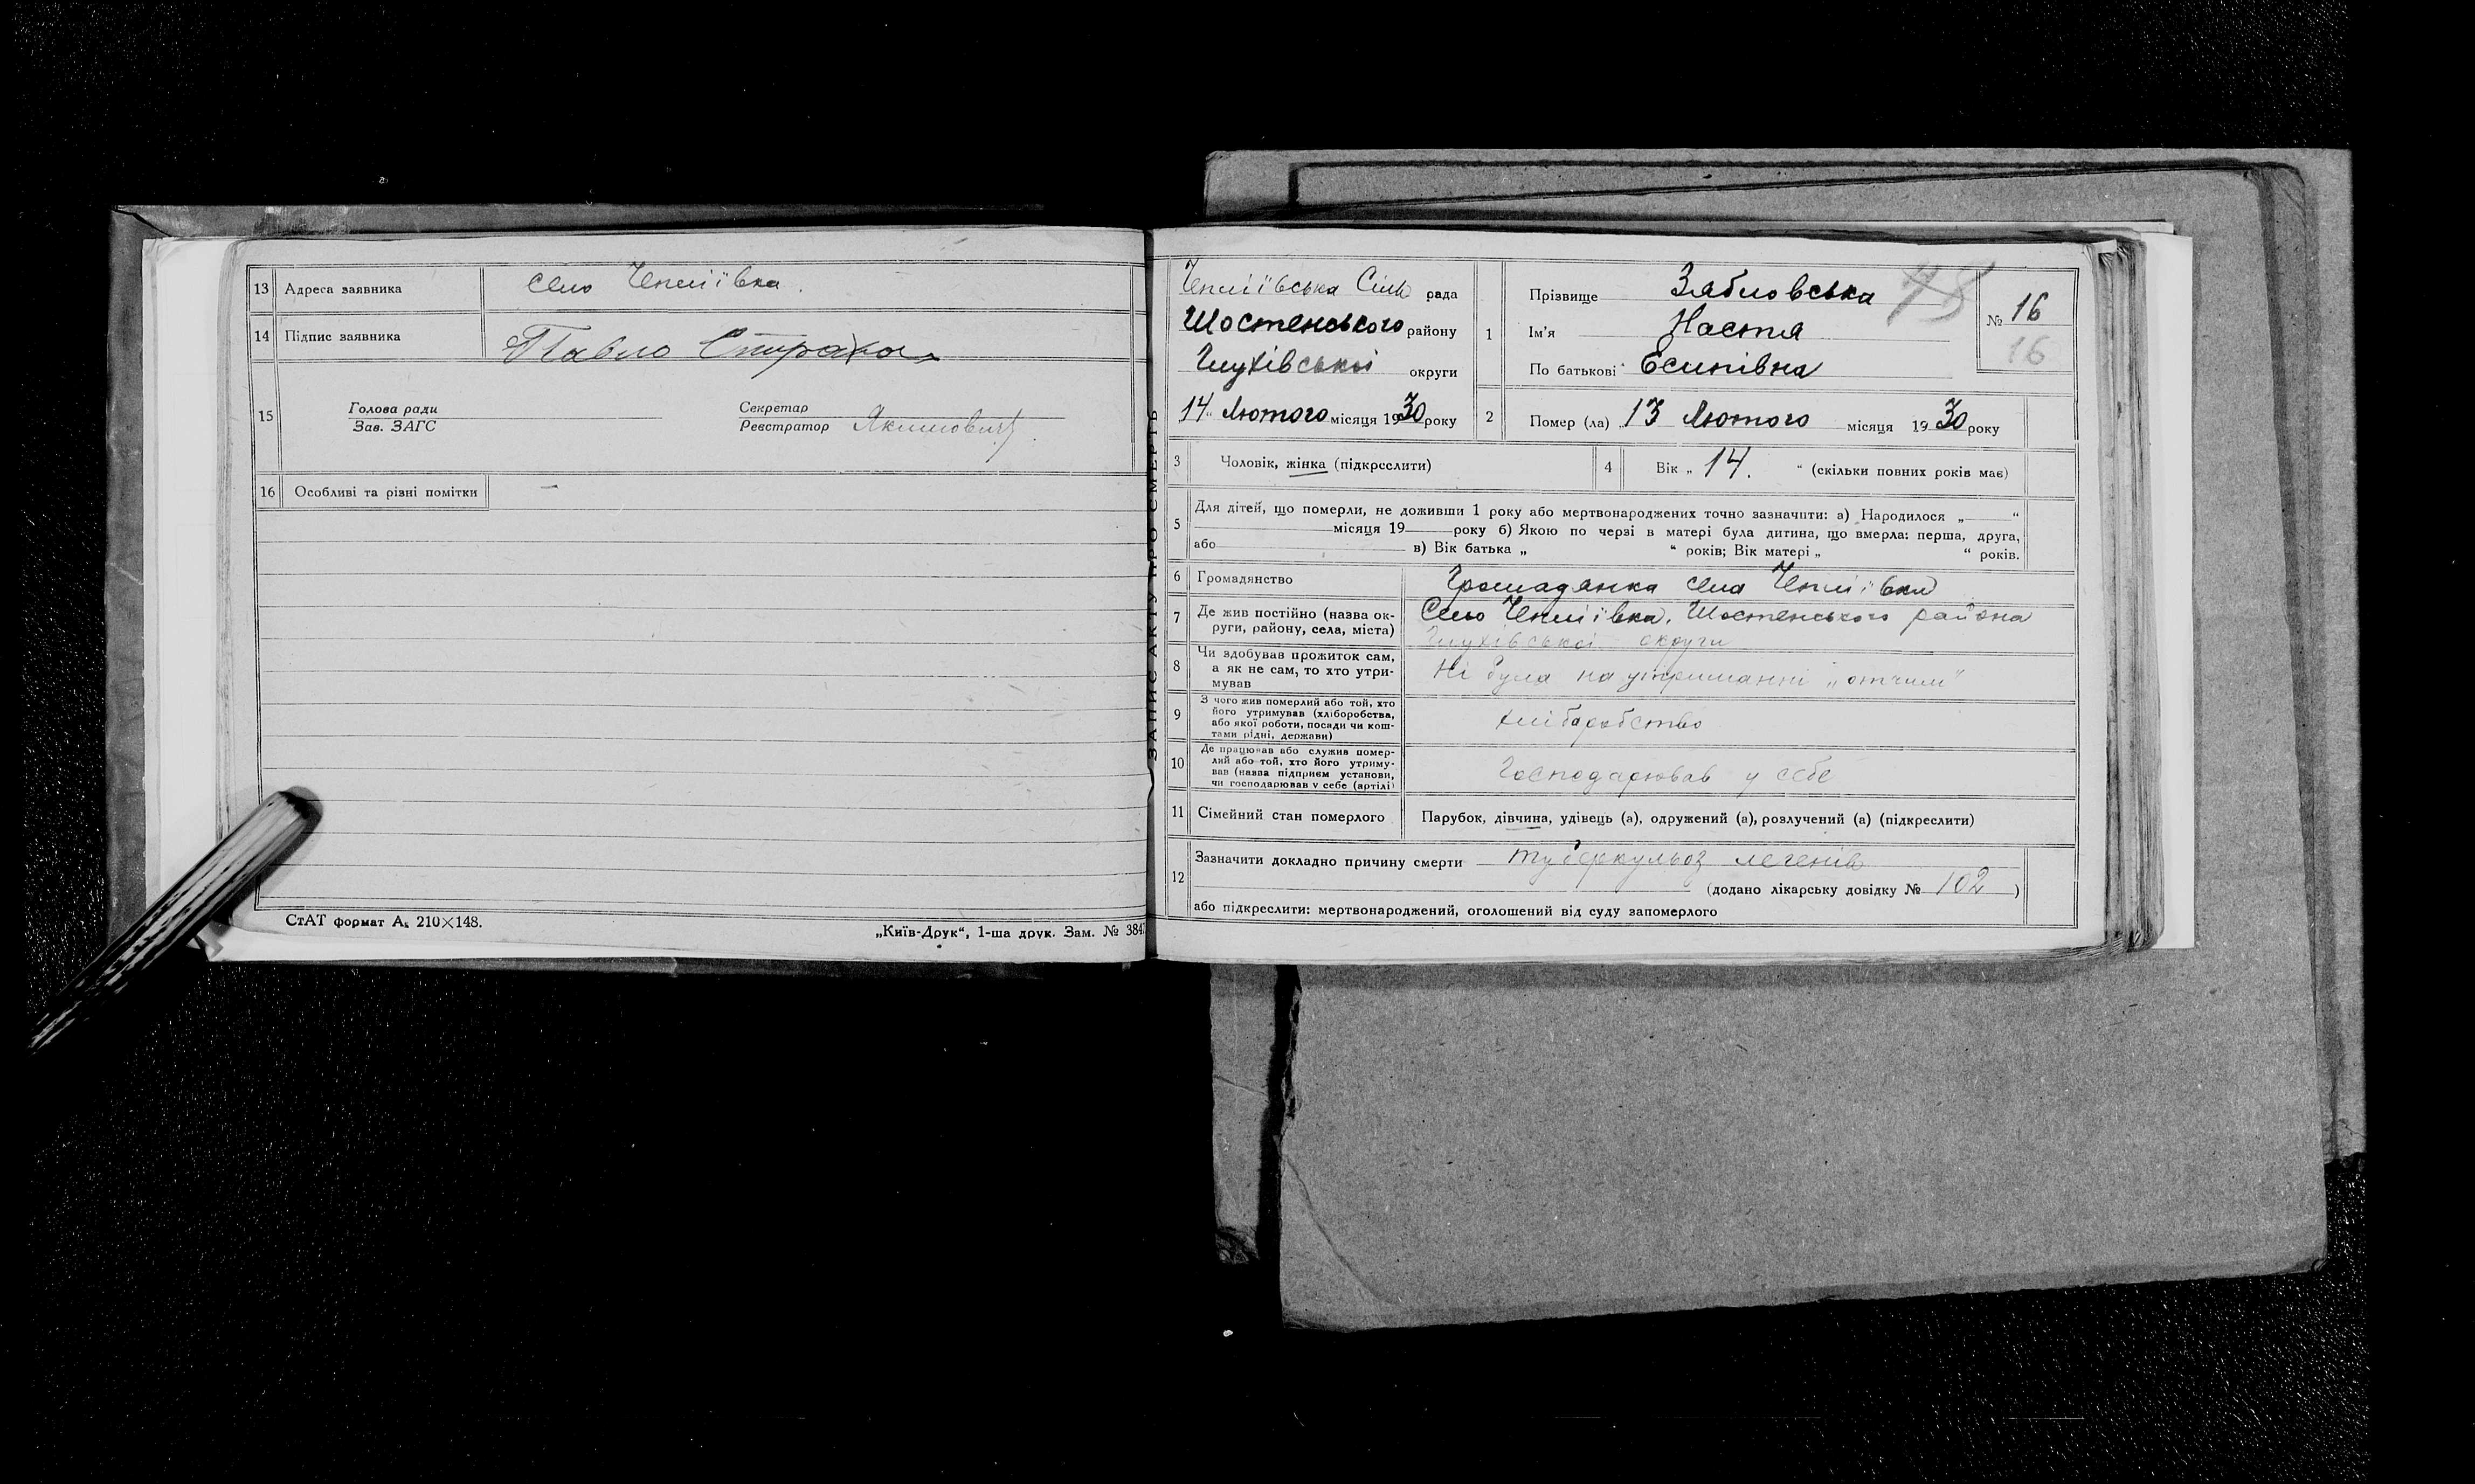 13 Адреса заявника село Чепліївка.
14 Підпис заявника Павло
15 Голова ради Секретар
Зав. ЗАГС Реєстратор Якимович
16 Особливі та різні помітки —
СтАТ формат А₅ 210×148.
„Київ-Друк“, 1-ша друк. Зам. № 384
ЗАПИС АКТУ ПРО СМЕРТЬ
Чепліївська Сіль рада
Шостенського району
Глухівської округи
14 „ Лютого місяця 1930 року
1 Прізвище Зябловська
Ім'я Настя
По батькові Есипівна
№ 16
16
2 Помер (ла) „ 13 Лютого місяця 1930 року
3 Чоловік, жінка (підкреслити) 4 Вік „ 14. “ (скільки повних років має)
5 Для дітей, що померли, не доживши 1 року або мертвонароджених точно зазначити: а) Народилося „ “
місяця 19 року б) Якою по черзі в матері була дитина, що вмерла: перша, друга,
або в) Вік батька „ “ років; Вік матері „ “ років.
6 Громадянство Громадянка села Чепліївки
7 Де жив постійно (назва ок-
руги, району, села, міста)
Село Чепліївка, Шостенського района
Глухівської округи
8 Чи здобував прожиток сам,
а як не сам, то хто утри-
мував
Ні була на утриманні „отчим“
9 З чого жив померлий або той, хто
його утримував (хліборобства,
або якої роботи, посади чи кош-
тами рідні, держави)
хліборобство
10 Де працював або служив помер-
лий або той, хто його утриму-
вав (назва підприєм установи,
чи господарював у себе (артілі)
Господарював у себе
11 Сімейний стан померлого Парубок, дівчина, удівець (а), одружений (а), розлучений (а) (підкреслити)
12 Зазначити докладно причину смерти туберкульоз легенів
(додано лікарську довідку № 102 )
або підкреслити: мертвонароджений, оголошений від суду запомерлого